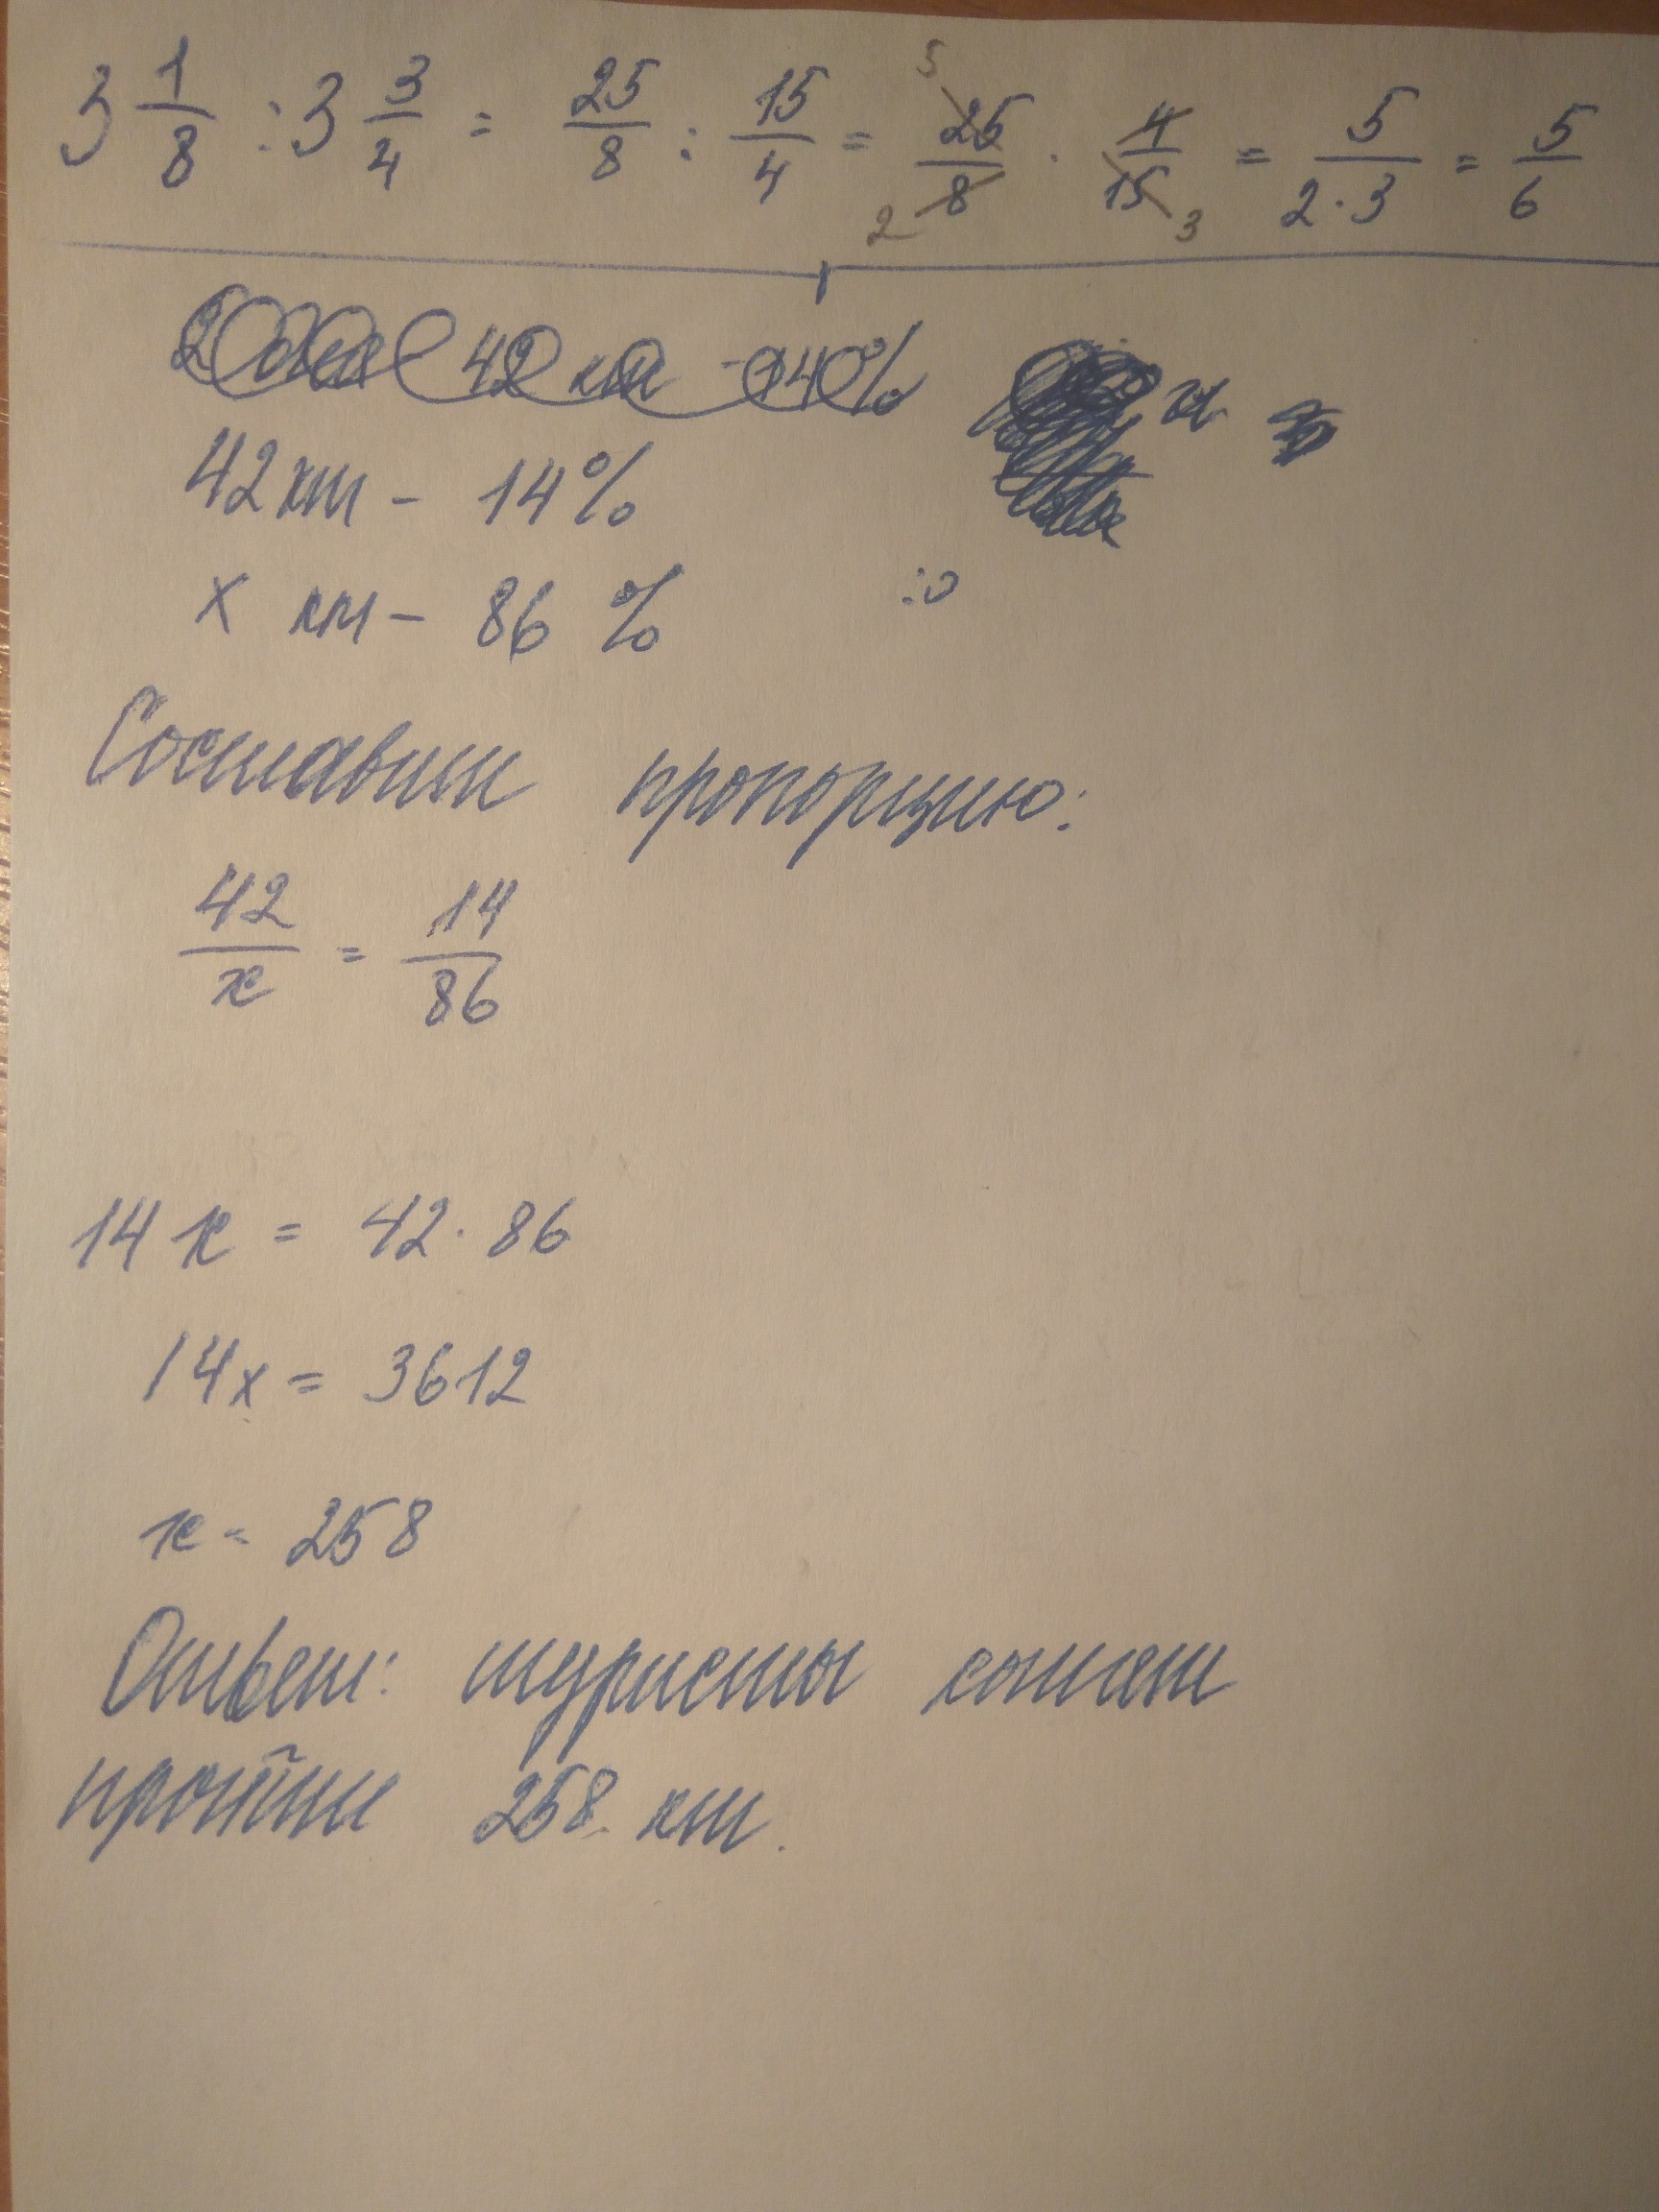 3 1/8 : 3 3/4 = 25/8 : 15/4 = 25/8 · 4/15 = 5/(2·3) = 5/6
42 км 14%
42 км – 14%
x км – 86 %
Составим пропорцию:
42/x = 14/86
14x = 42 · 86
14x = 3612
x = 258
Ответ: туристы
пройти 258 км.